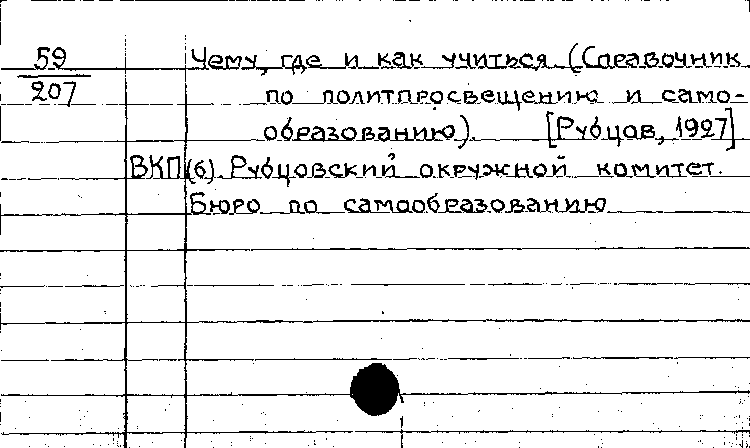 59
207
Чему, где и как учиться (Справочник
по политпросвещению и само-
образованию). [Рубцов, 1927]
ВКП(б). Рубцовский окружной комитет.
Бюро по самообразованию